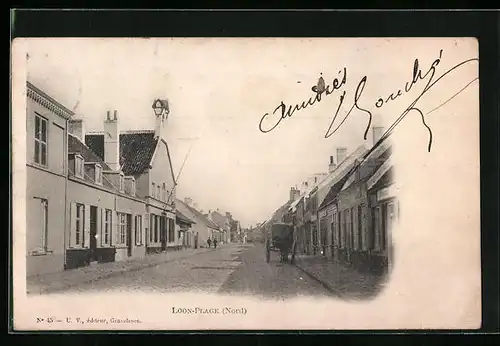 Amédiés
Bouché
LOON-PLAGE (Nord)
N° 45 - U. V., éditeur, Gravelines.